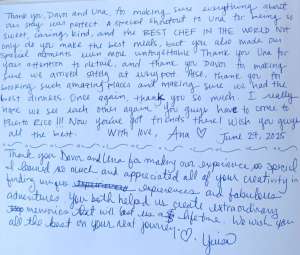 Thank you, Davor and Una for making sure everything about
our stay was perfect. A special shoutout to Una for being so
sweet, caring, kind, and the BEST CHEF IN THE WORLD. Not
only did you make the best meals, but you also made our
special moments even more unforgettable! Thank you Una for
your attention to detail, and thank you Davor to making
sure we arrived safely at every port. Also, thank you for
booking such amazing places and making sure we had the
best dinners. Once again, thank you so much. I really
hope we see each other again — you guys have to come to
Puerto Rico!!! Now you've got friends there! Wish you guys
all the best. With love, Ana ♡ June 27, 2025
Thank you Davor and Una for making our experience so special
I learned so much and appreciated all of your creativity in
finding unique experiences and fabulous
adventures. You both helped us create extraordinary
memories that will last us a lifetime. We wish you
all the best on your next journey. ♡